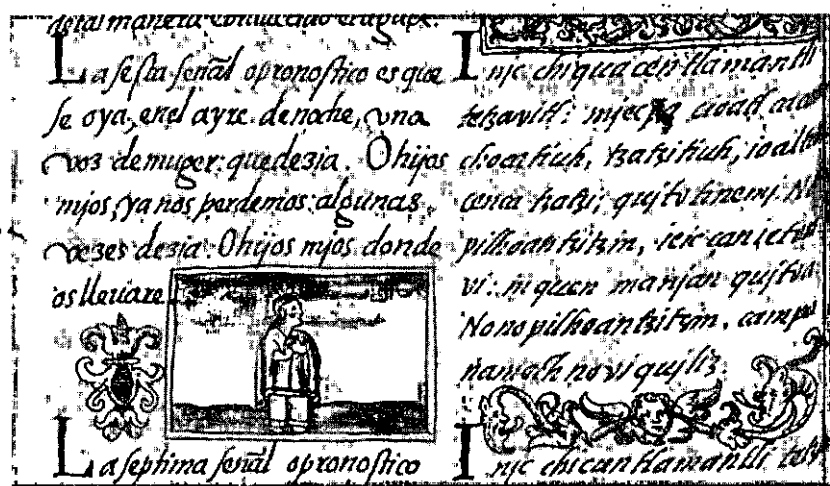 de tal manera
La sesta señal o pronostico es que
se oya, en el ayre de noche, una
voz de muger: que dezia. O hijos
mjos, ya nos perdemos: algunas
vezes dezia. O hijos mjos donde
os lleuare
La septima señal o pronostico
Injc chiquacentlamantli
tetzavitl: mjecpa cioatl
chocatiuh, tzatzitiuh,
cenca tzatzi; qujtotinemj.
nopilhoantzitzin,
vi: in quen manjan qujtoa
Nonopilhoantzitzin, campa
namech noviqujliz
Injc chicuntlamantli